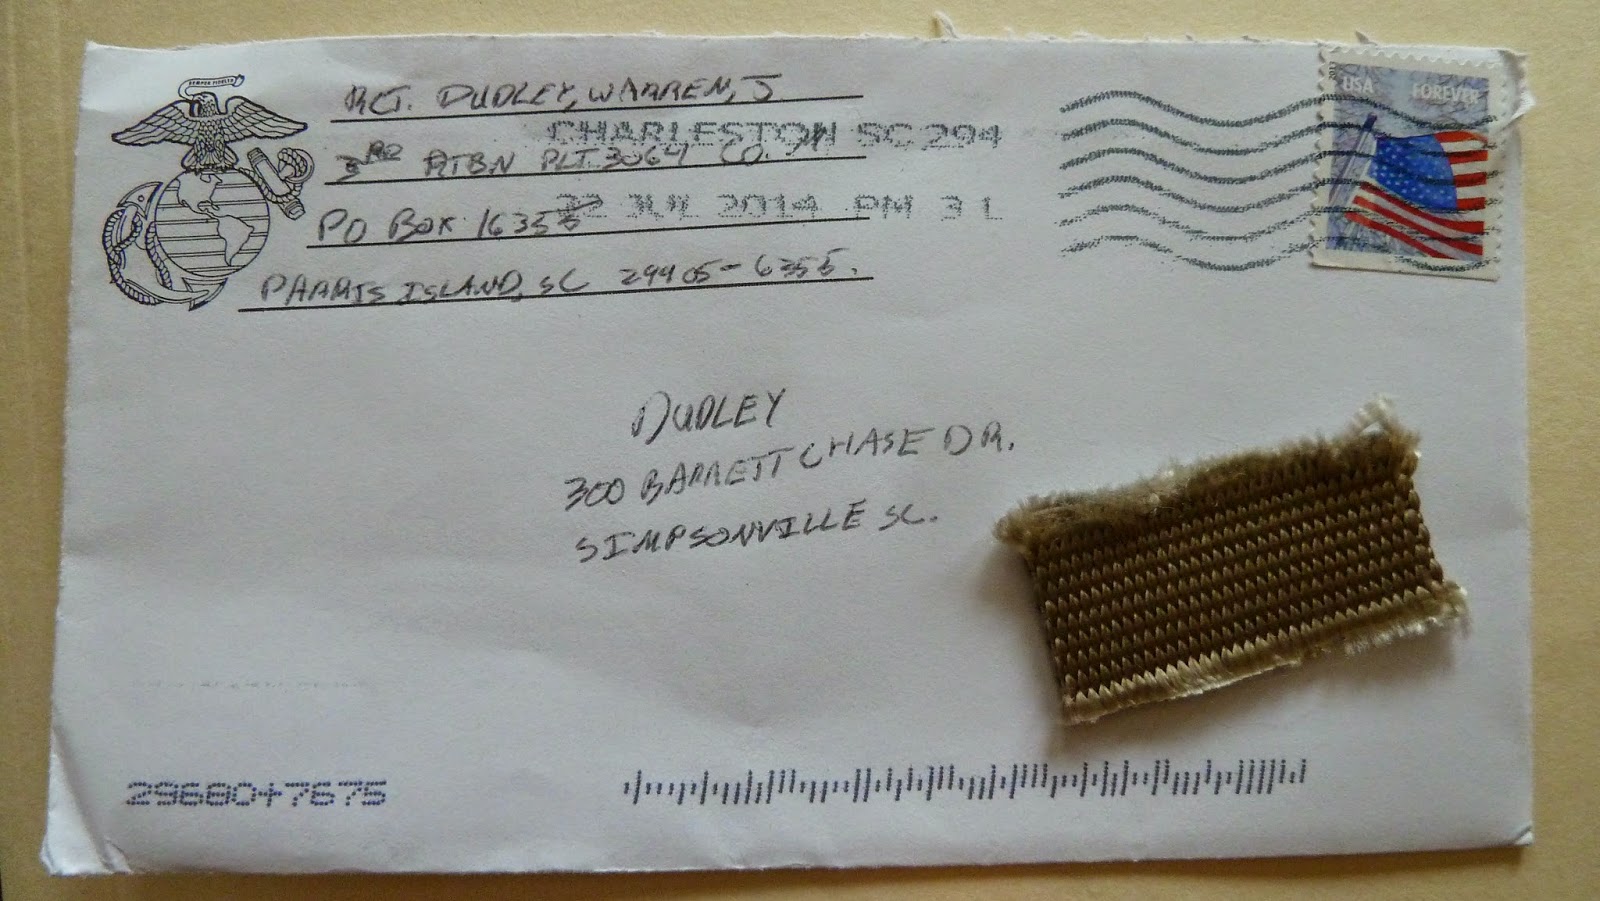 SEMPER FIDELIS
RCT. DUDLEY, WARREN, J
3RD RTBN PLT. 3064 CO. M
PO BOX 16355
PARRIS ISLAND, SC 29905-6355.
CHARLESTON SC 294
22 JUL 2014 PM 3 L
USA FOREVER
DUDLEY
300 BARRETT CHASE DR.
SIMPSONVILLE SC.
29680+7675